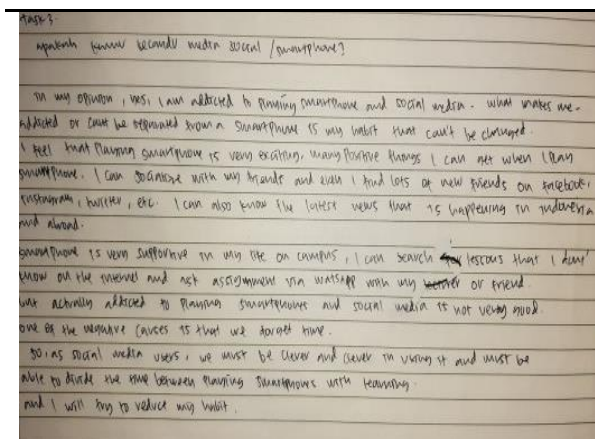 Task 3
apakah kamu kecandu media social / smartphone?
in my opinion, yes, I am addicted to playing smartphone and social media. what makes me
addicted or can't be separated from a smartphone is my habit that can't be changed.
I feel that playing smartphone is very exciting, many positive things I can get when I play
smartphone. I can socialize with my friends and even I find lots of new friends on facebook,
instagram, twitter, etc. I can also know the latest news that is happening in indonesia
and abroad.
smartphone is very supportive in my life on campus, I can search lessons that I don't
know on the internet and ask assignment via watsapp with my or friend.
but actually addicted to playing smartphones and social media is not very good.
one of the negative causes is that we forget time.
so, as social media users, we must be clever and clever in using it and must be
able to divide the time between playing smartphones with learning.
and I will try to reduce my habit.